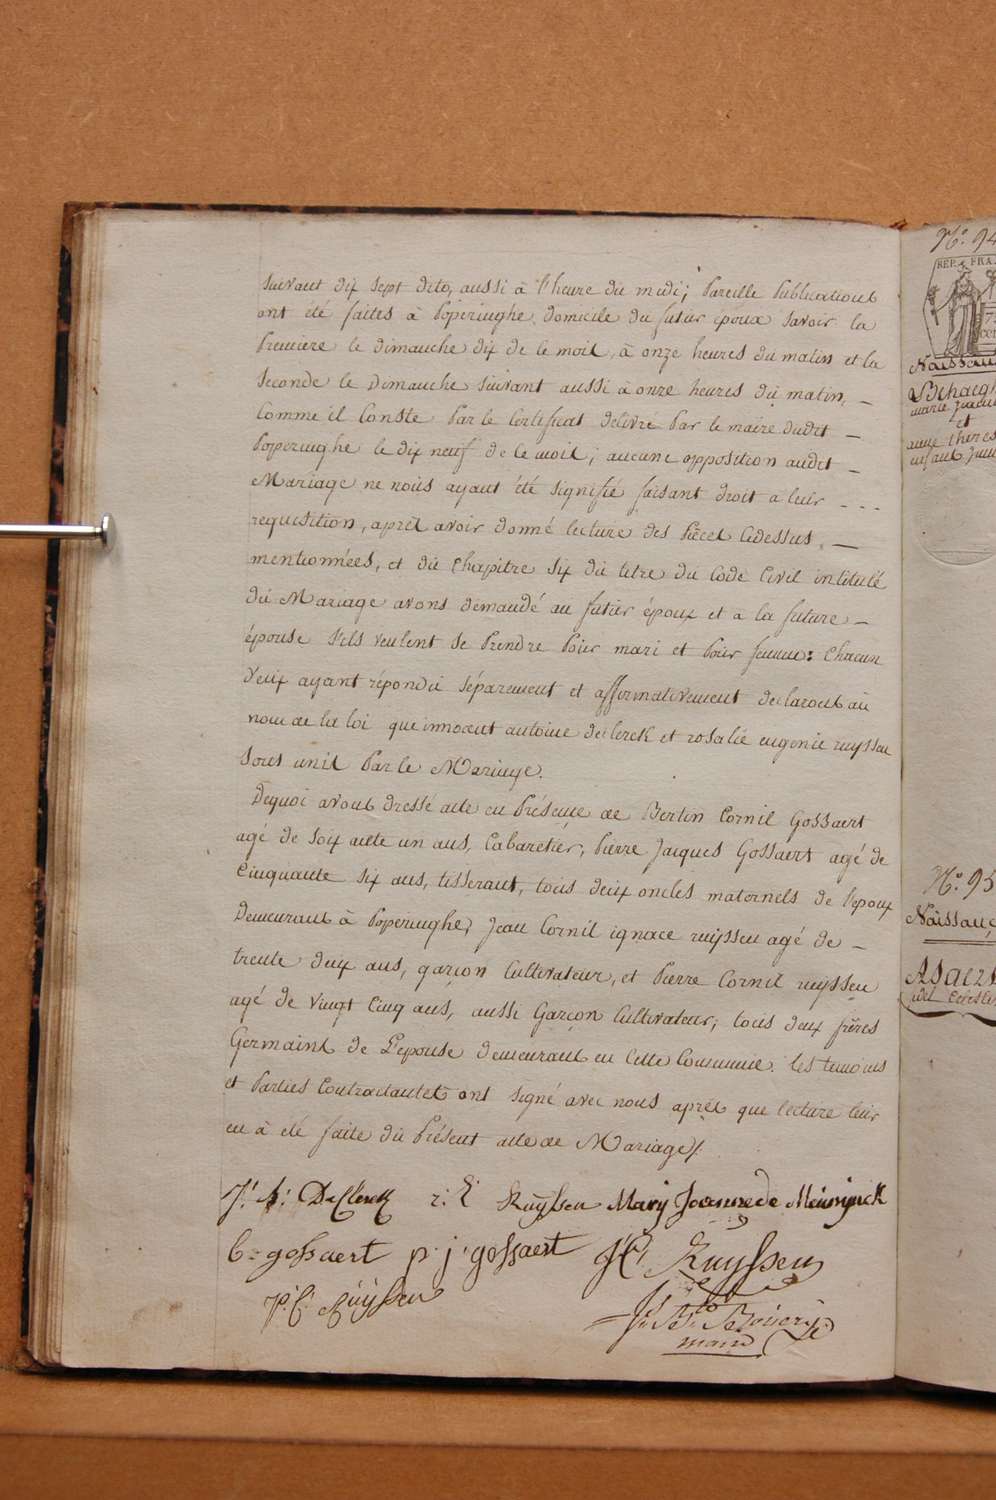 suivant dix sept dito, aussi à l'heure du midi; Pareille Publications
ont été faites à Poperinghe, domicile du futur époux savoir la
Première le dimanche dix de ce mois, à onze heures du matin et la
seconde le Dimanche suivant aussi à onze heures du matin, —
Comme il Conste Par le Certificat délivré Par le maire dudit —
Poperinghe le dix neuf de ce mois; aucune opposition audit —
Mariage ne nous ayant été signifié faisant droit a leur ---
requisition, après avoir donné lecture des Pièces Cidessus, —
mentionnées, et du Chapitre six du titre du Code Civil intitulé
du Mariage avons demandé au futur époux et a la future —
épouse s'ils veulent se Prendre Pour mari et Pour femme: Chacun
d'eux ayant répondu séparement et affirmativement declarons au
nom de la loi que innocent antoine declerck et rosalie eugenie ruyssen
sons unis Par le Mariage.
Dequoi avons dressé acte en Présence de Bertin Cornil Gossaert
agé de soixante un ans, Cabaretier, Pierre Jacques Gossaert agé de
Cinquante six ans, tisserant, tous deux oncles maternels de l'epoux
Demeurant à Poperinghe, Jean Cornil ignace ruyssen agé de —
trente deux ans, garçon Cultivateur, et Pierre Cornil ruyssen
agé de vingt Cinq ans, aussi Garçon Cultivateur, tous deux frères
Germains de L'epouse demeurant en Cette Commune. les temoins
et Parties Contractantes ont signé avec nous après que lecture leur
en à été faite du Présent acte de Mariage/.
J: A: DeClerck r: E Ruÿssen Marij Joanna de Meunijnck
b= gossaert p. j. gossaert JC Ruyssen
P: C: Ruÿssen
maire
N.° 94
REP. FRA.
Naissan
N.° 95
Naissanc